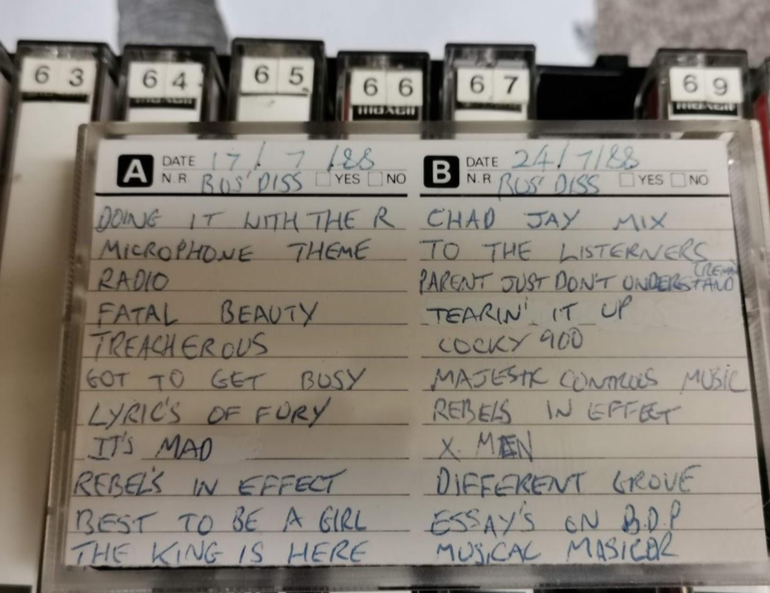 63 64 65 66 67 69
maxell maxell maxell
A DATE 17/7/88
N.R BUS' DISS YES NO
DOING IT WITH THE R
MICROPHONE THEME
RADIO
FATAL BEAUTY
TREACHEROUS
GOT TO GET BUSY
LYRIC'S OF FURY
IT'S MAD
REBEL'S IN EFFECT
BEST TO BE A GIRL
THE KING IS HERE
B DATE 24/7/88
N.R BUS' DISS YES NO
CHAD JAY MIX
TO THE LISTERNERS
PARENT JUST DON'T UNDERSTAND
TEARIN' IT UP
COCKY 900
MAJESTIC CONTROLS MUSIC
REBELS IN EFFECT
X. MEN
DIFFERENT GROVE
ESSAY'S ON B.D.P
MUSICAL